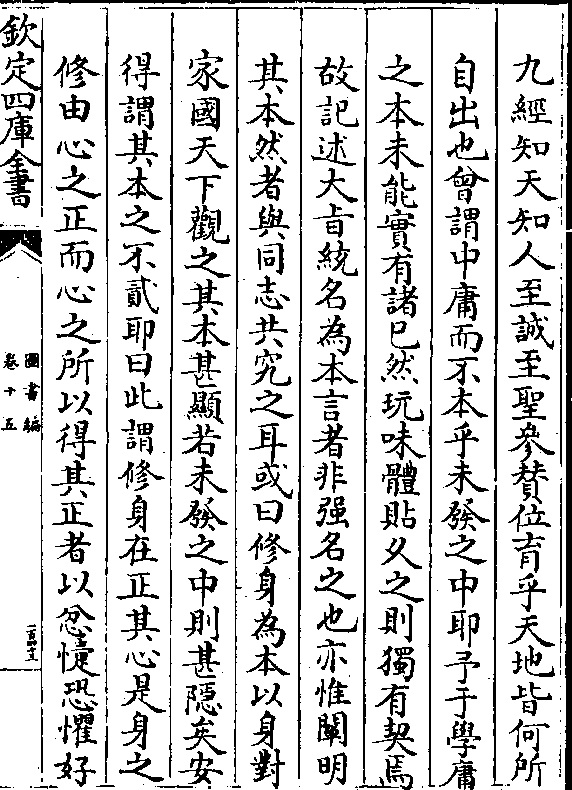 九經知天知人至誠至聖參贊位育乎天地皆何所
自出也曾謂中庸而不本乎未發之中耶予于學庸
之本未能實有諸已然玩味體貼久之則獨有契焉
故記述大㫖統名為本言者非强名之也亦惟闡明
其本然者與同志共究之耳或曰修身為本以身對
家國天下觀之其本甚顯若未發之中則甚隱矣安
得謂其本之不貳耶曰此謂修身在正其心是身之
修由心之正而心之所以得其正者以忿懥恐懼好
欽定四庫全書
圖書編
卷十五